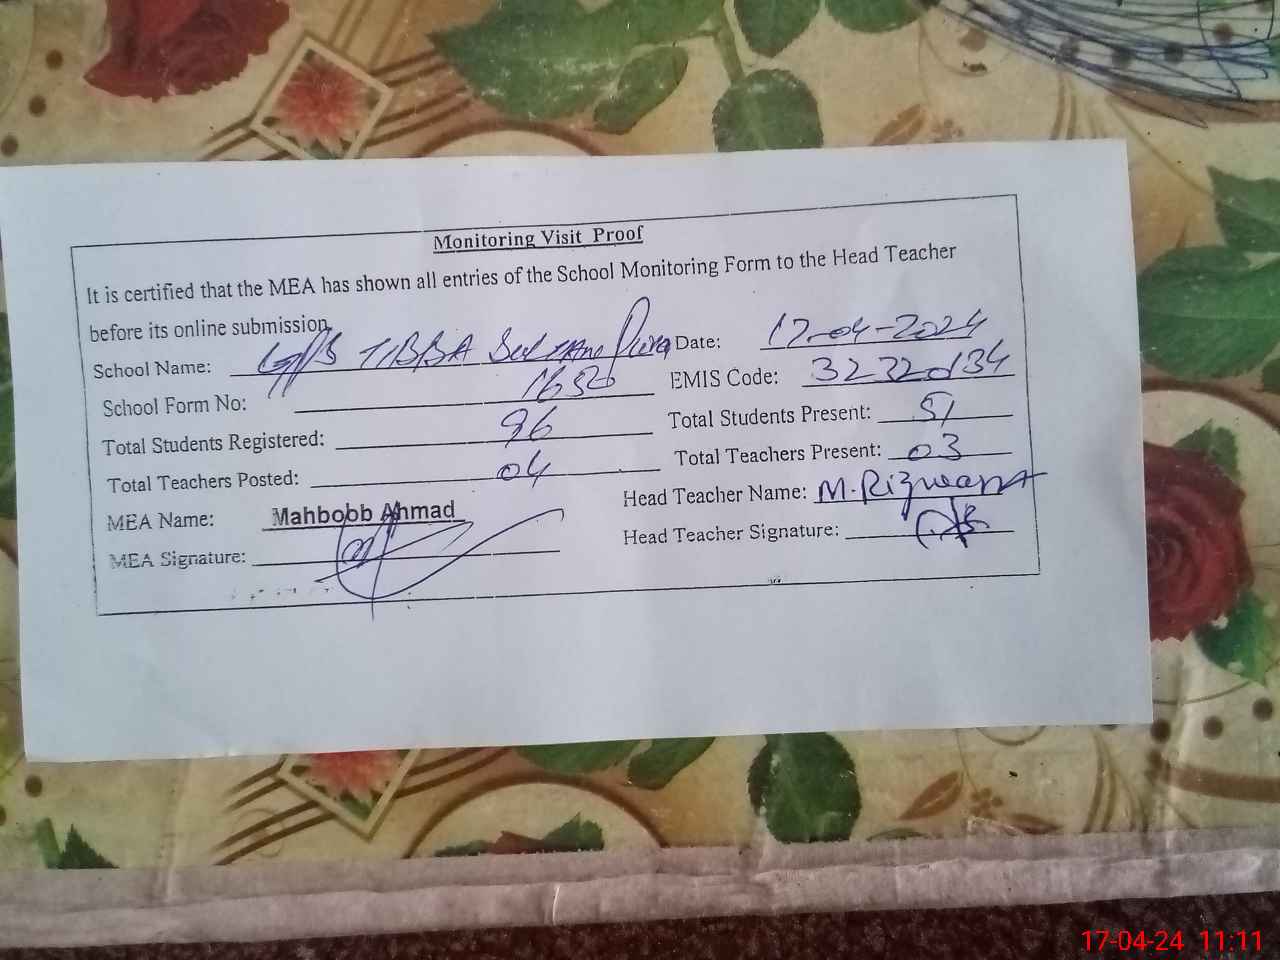 Monitoring Visit Proof
It is certified that the MEA has shown all entries of the School Monitoring Form to the Head Teacher
before its online submission
School Name: TIBBA Date: 17-04-2024
School Form No: EMIS Code: 32320134
Total Students Registered: 96 Total Students Present: 51
Total Teachers Posted: 04 Total Teachers Present: 03
MEA Name: Mahbobb Ahmad Head Teacher Name: M. Rizwan
MEA Signature: Head Teacher Signature:
17-04-24 11:11